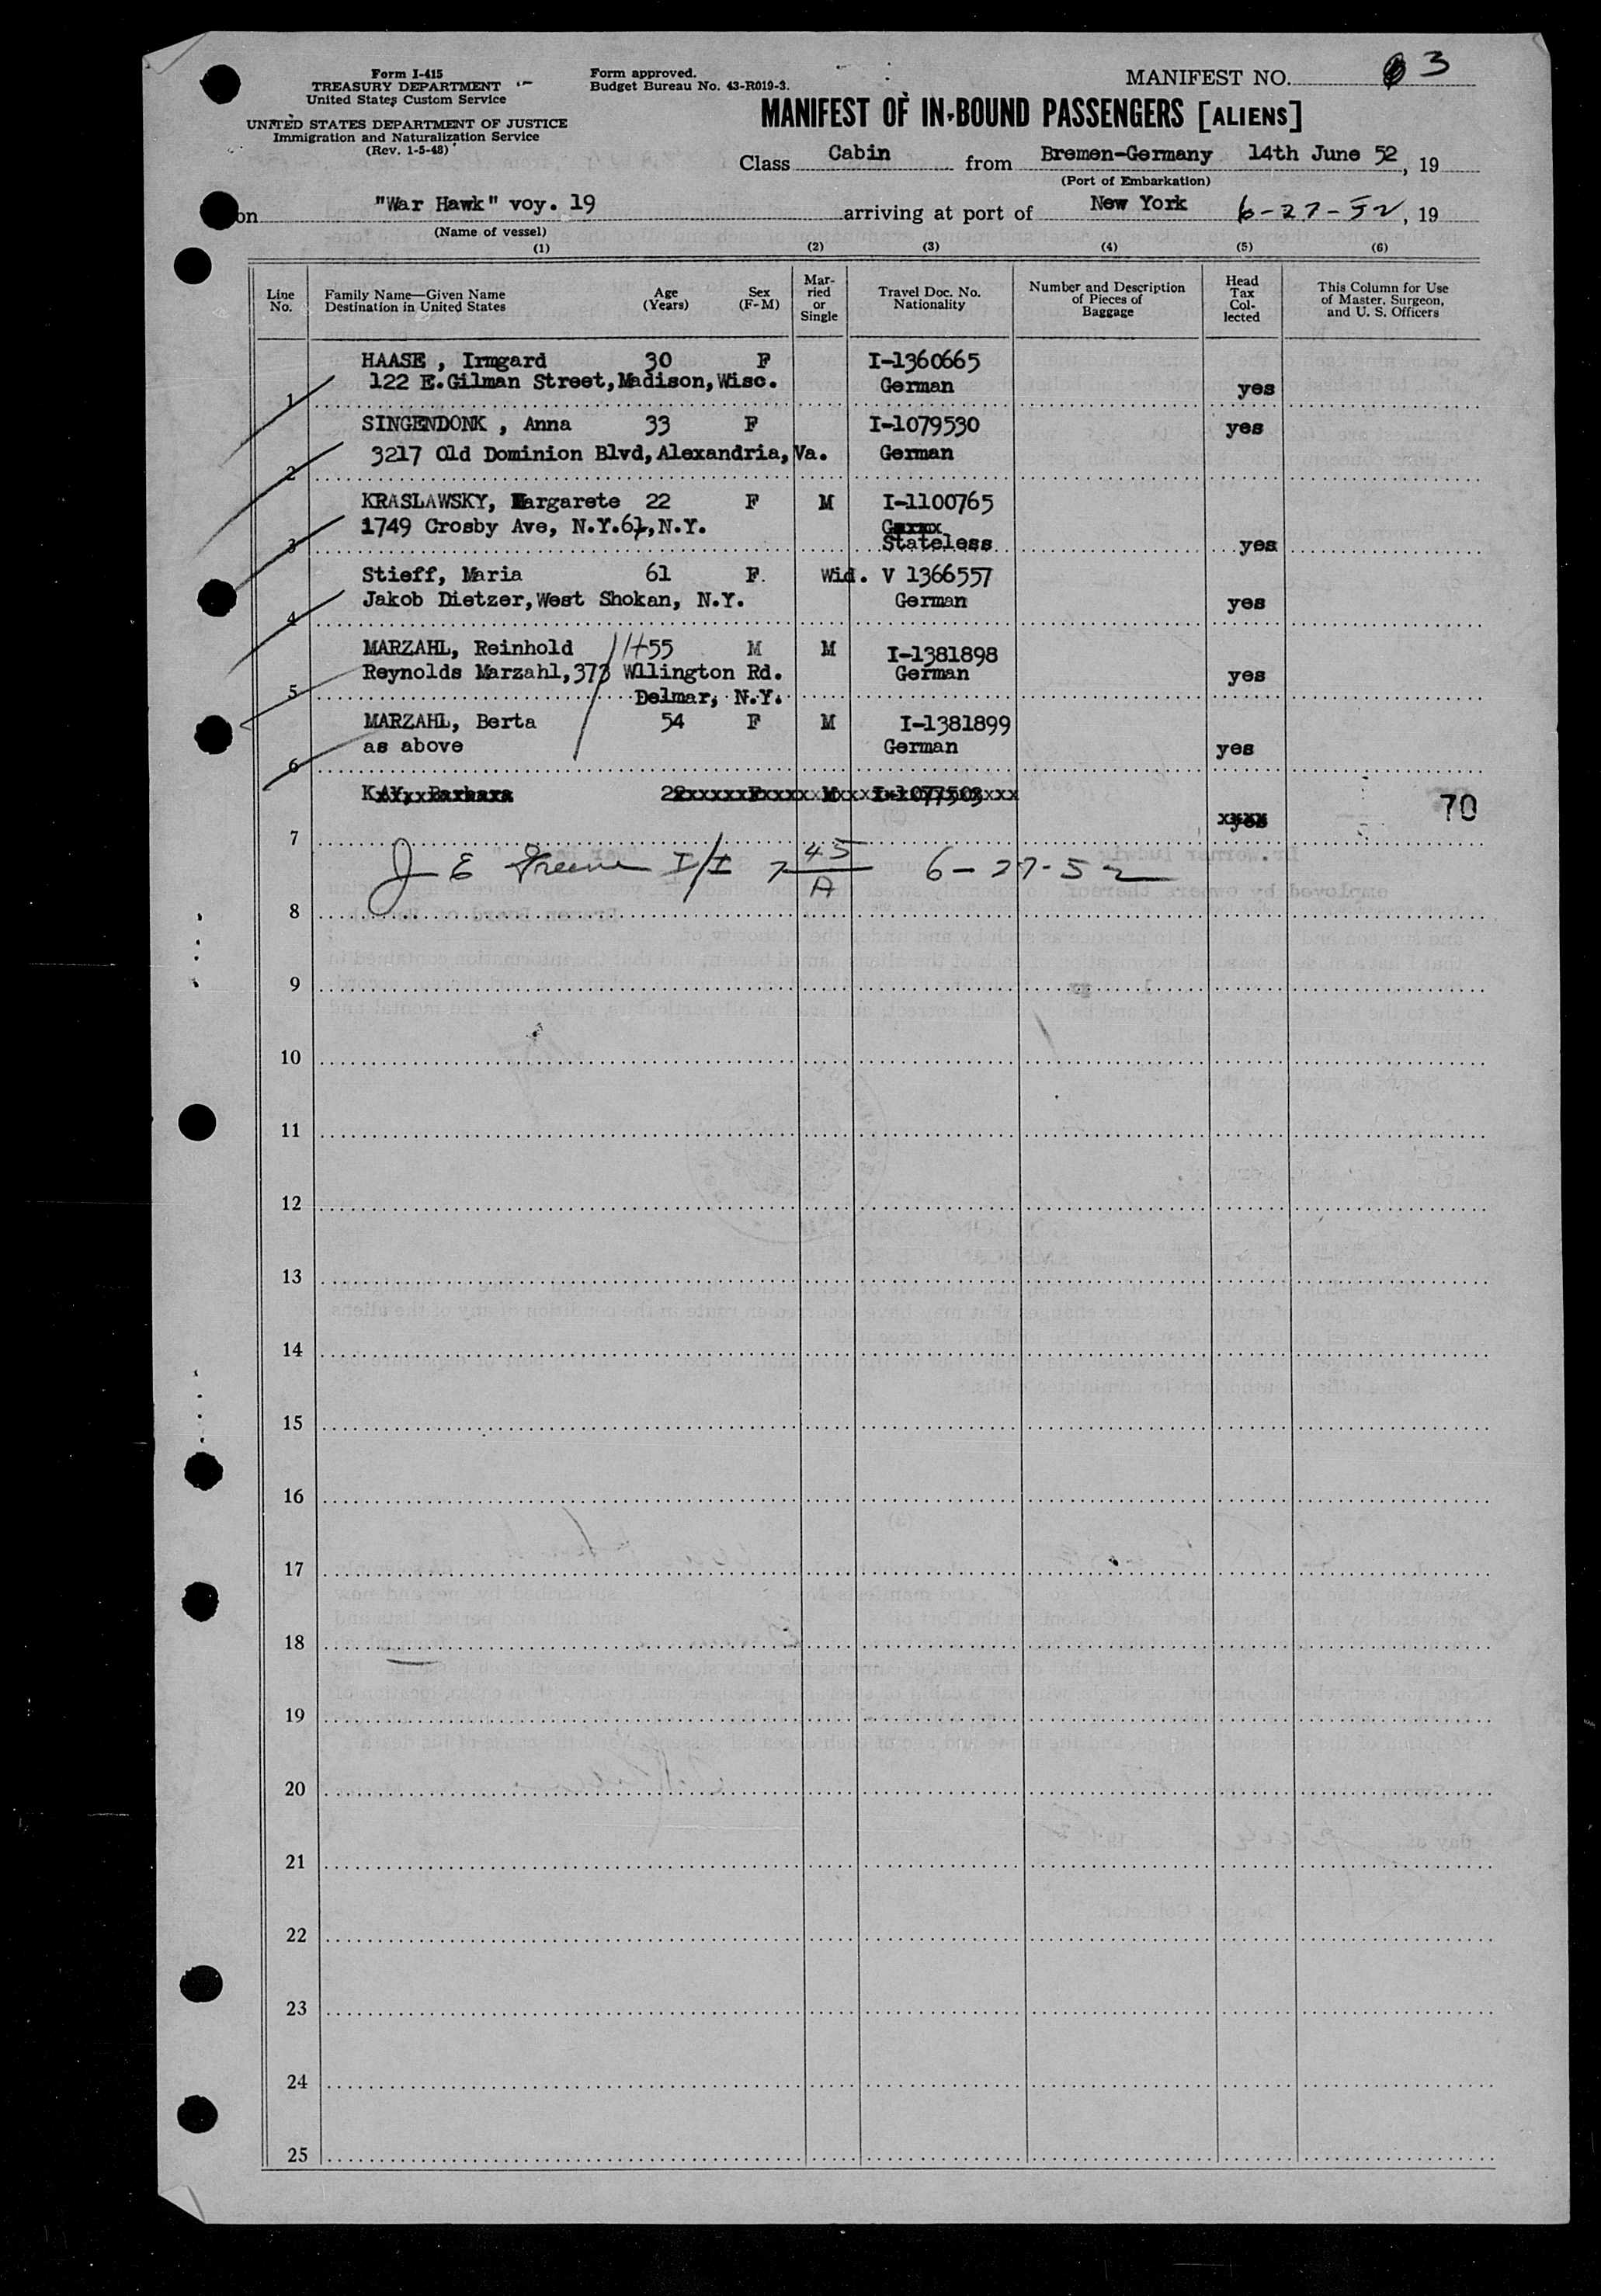 Form I-415
TREASURY DEPARTMENT
United States Custom Service
UNITED STATES DEPARTMENT OF JUSTICE
Immigration and Naturalization Service
(Rev. 1-5-48)
Form approved.
Budget Bureau No. 43-R019-3.
MANIFEST NO. 3
MANIFEST OF IN-BOUND PASSENGERS [ALIENS]
Class Cabin from Bremen-Germany 14th June 52, 19
(Port of Embarkation)
on "War Hawk" voy. 19 arriving at port of New York 6-27-52, 19
(Name of vessel)
(1) (2) (3) (4) (5) (6)
Line No. Family Name—Given Name Destination in United States Age (Years) Sex (F-M) Married or Single Travel Doc. No. Nationality Number and Description of Pieces of Baggage Head Tax Collected This Column for Use of Master, Surgeon, and U. S. Officers
HAASE , Irmgard 30 F I-1360665
1 122 E.Gilman Street,Madison,Wisc. German yes
SINGENDONK , Anna 33 F I-1079530 yes
2 3217 Old Dominion Blvd,Alexandria,Va. German
KRASLAWSKY, Margarete 22 F M I-1100765
1749 Crosby Ave, N.Y.61,N.Y.
3 Stateless yes
Stieff, Maria 61 F. Wid. V 1366557
4 Jakob Dietzer,West Shokan, N.Y. German yes
MARZAHL, Reinhold 55 M M I-1381898
Reynolds Marzahl,373 Wllington Rd. German yes
5 Delmar, N.Y.
MARZAHL, Berta 54 F M I-1381899
6 as above German yes
KAY, Barbara 22 F M I-1077503
7 yes 70
J E Greene I/I 7 45/A 6-27-52
8
9
10
11
12
13
14
15
16
17
18
19
20
21
22
23
24
25